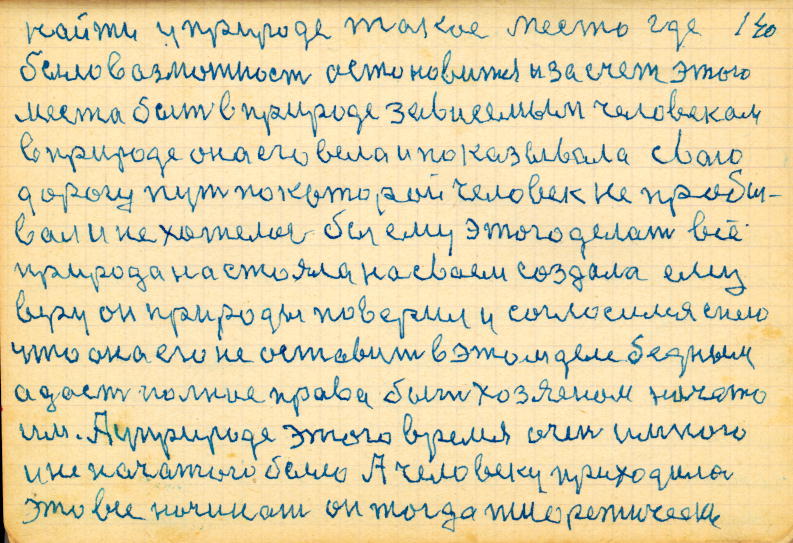 найти у природе такое место где 140
было возможност остоновится и за счет этого
места быт в природе зависемым человекам
в природе она его вела и показывала сваю
дорогу пут по которой человек не пробы-
вал и не хотелос бы ему этого делат всё
природа настояла на сваем создала ему
веру он природы поверил и согласился с нею
что она его не оставит в этом деле бедным
а даст полные права быт хозяеном начато
им. А у природе этого время очен и много
и не початого было А человеку приходилос
это все начинат он тогда тиоретически